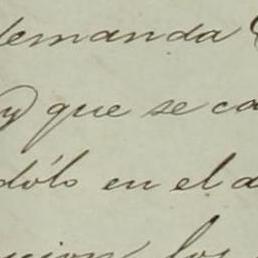 demanda
y que se ca
dólo en el d
los